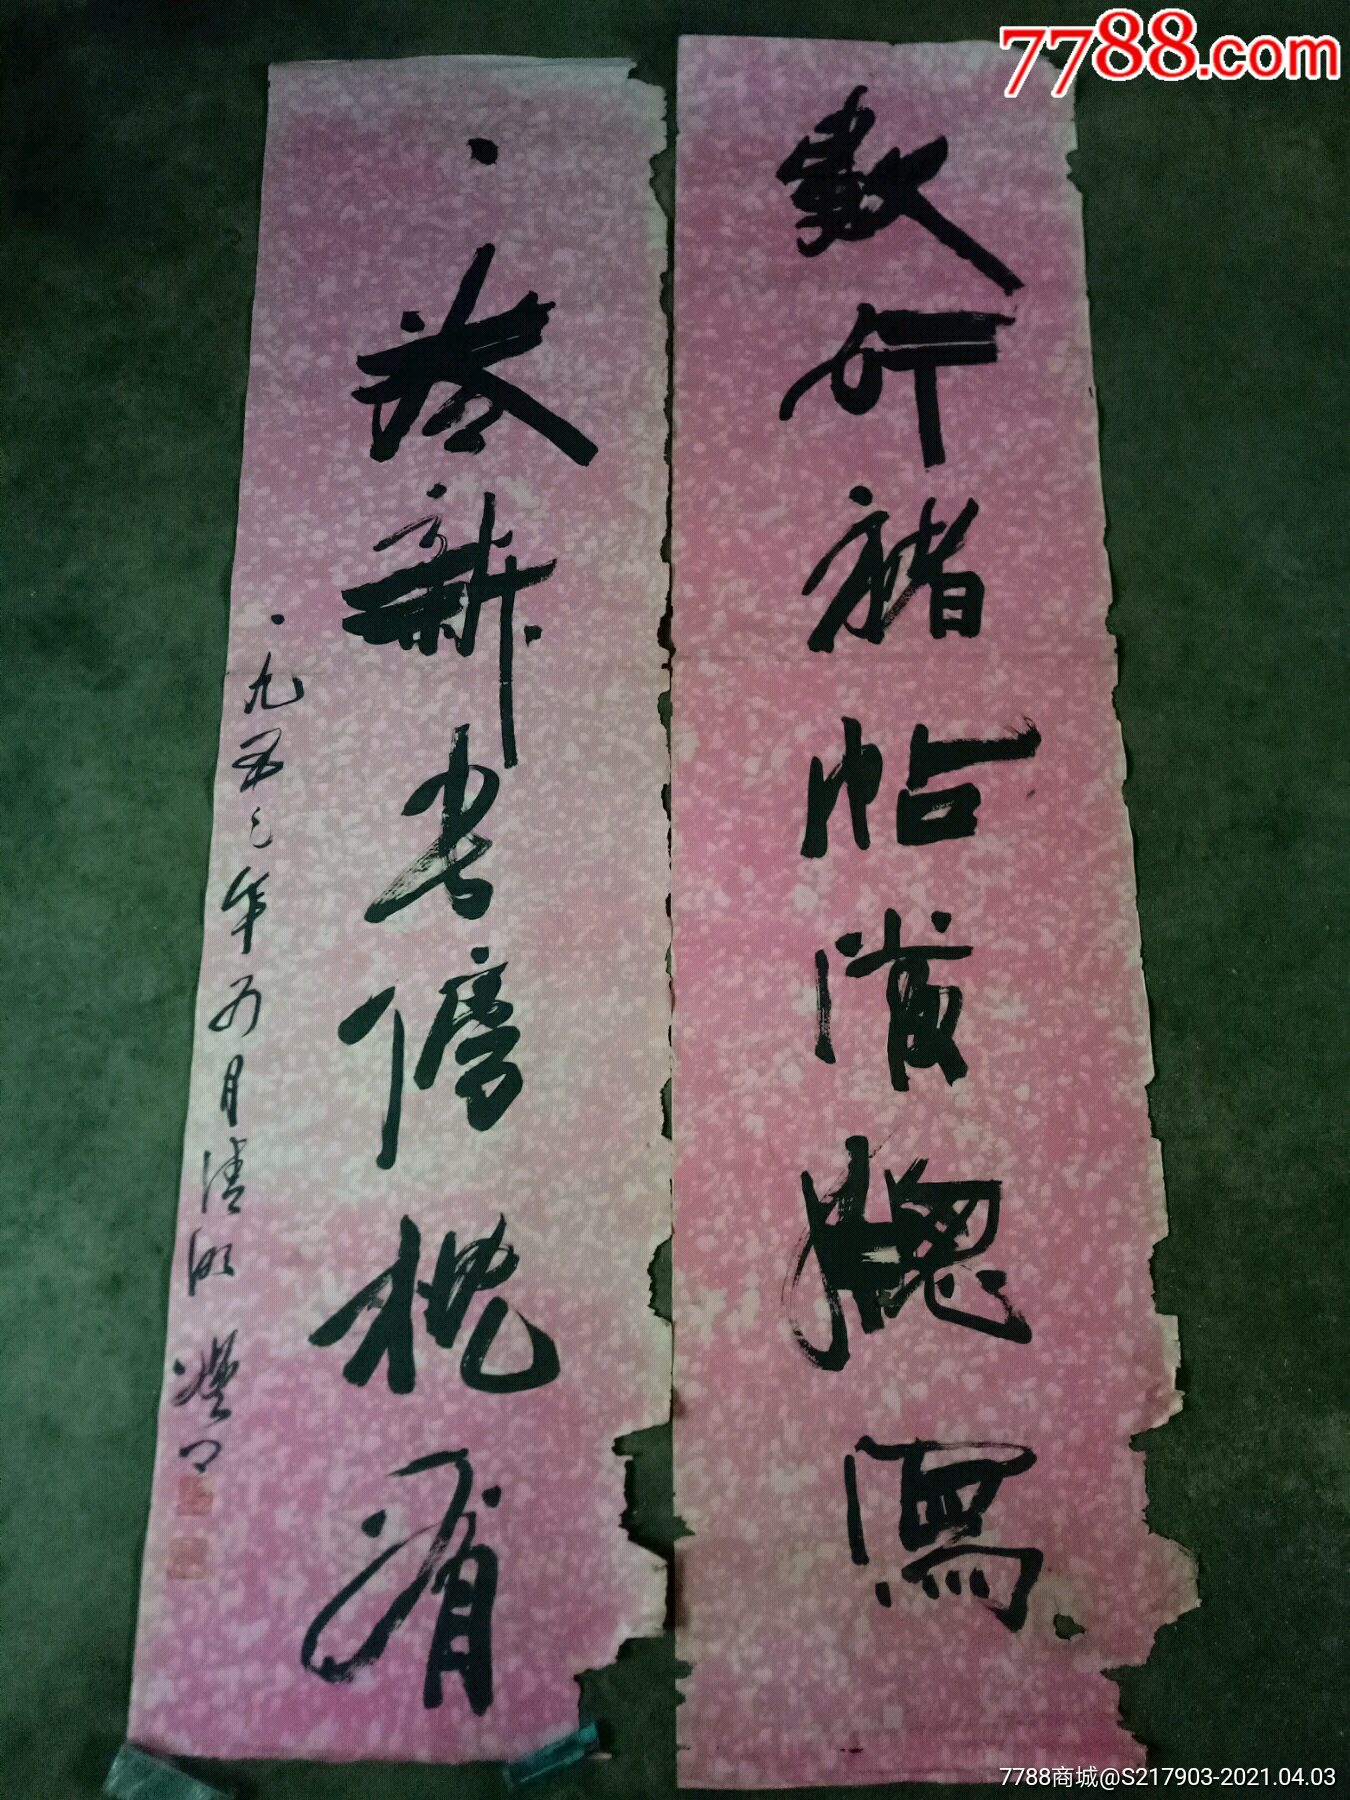 7788.com
數行褚帖闲牕寫
一卷新书倦枕看
一九五三年五月清明
7788商城@S217903-2021.04.03